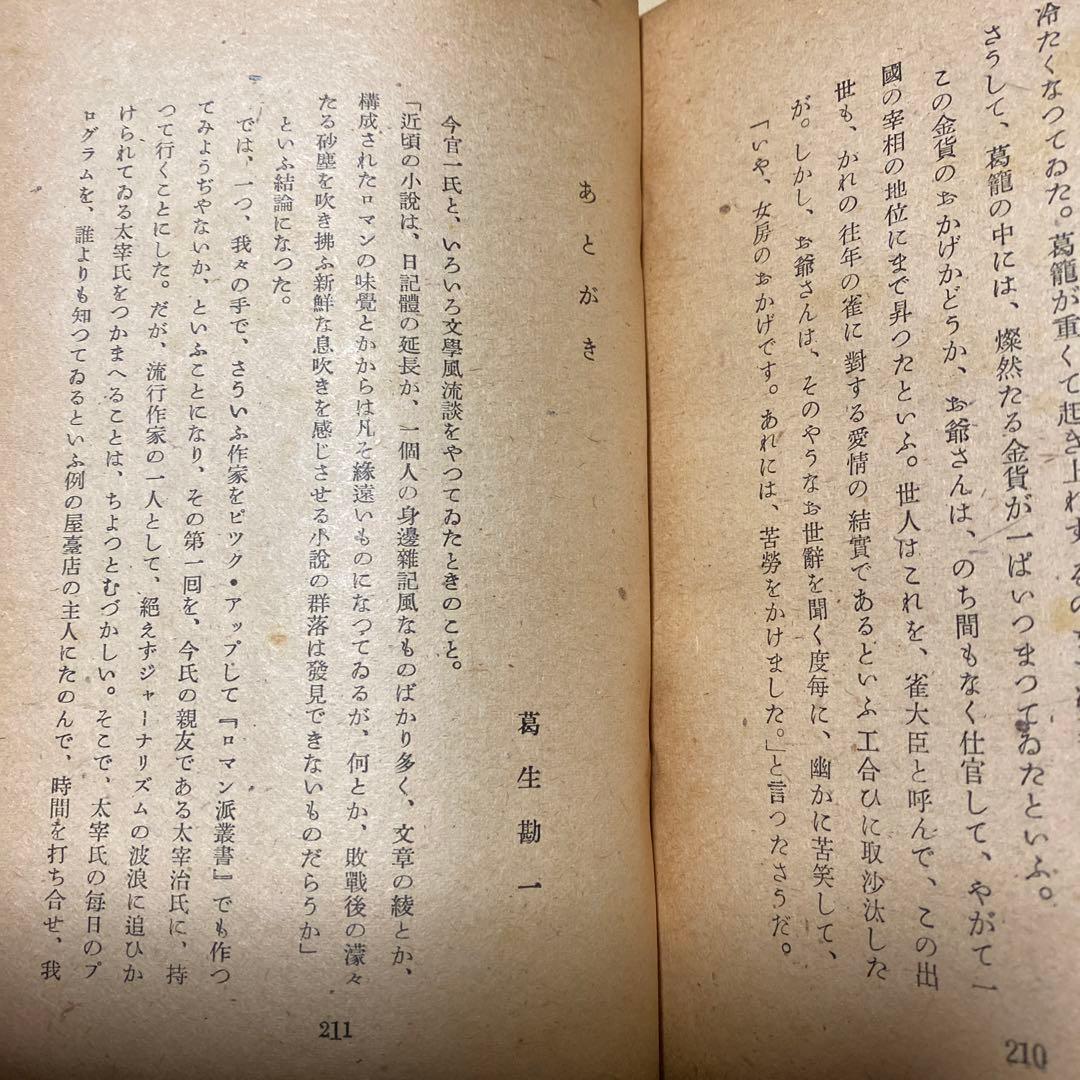 冷たくなつてゐた。葛籠が重くて起き上れず、その
さうして、葛籠の中には、燦然たる金貨が一ぱいつまつてゐたといふ。
この金貨のおかげかどうか、お爺さんは、のち間もなく仕官して、やがて一
國の宰相の地位にまで昇つたといふ。世人はこれを、雀大臣と呼んで、この出
世も、かれの往年の雀に對する愛情の結實であるといふ工合ひに取沙汰した
が。しかし、お爺さんは、そのやうなお世辭を聞く度毎に、幽かに苦笑して、
「いや、女房のおかげです。あれには、苦勞をかけました。」と言つたさうだ。
210
あとがき
葛生勘一
今官一氏と、いろいろ文學風流談をやつてゐたときのこと。
「近頃の小說は、日記體の延長か、一個人の身邊雜記風なものばかり多く、文章の綾とか、
構成されたロマンの味覺とかからは凡そ緣遠いものになつてゐるが、何とか、敗戰後の濛々
たる砂塵を吹き拂ふ新鮮な息吹きを感じさせる小說の群落は發見できないものだらうか」
といふ結論になつた。
では、一つ、我々の手で、さういふ作家をピツク・アップして『ロマン派叢書』でも作つ
てみようぢやないか、といふことになり、その第一回を、今氏の親友である太宰治氏に、持
つて行くことにした。だが、流行作家の一人として、絕えずジャーナリズムの波浪に追ひか
けられてゐる太宰氏をつかまへることは、ちよつとむづかしい。そこで、太宰氏の每日のプ
ログラムを、誰よりも知つてゐるといふ例の屋臺店の主人にたのんで、時間を打ち合せ、我
211